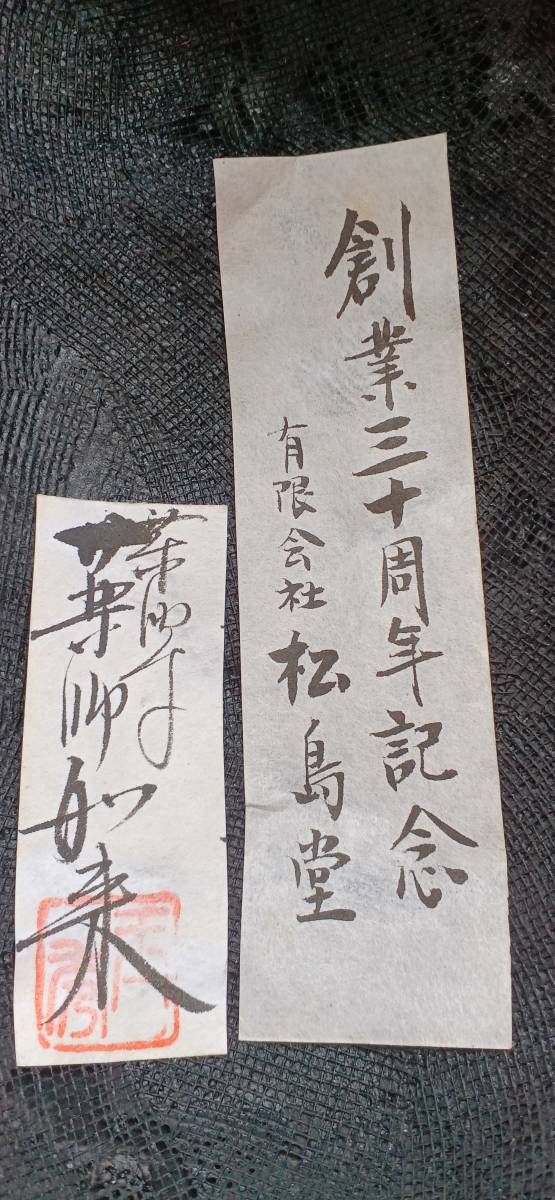 創業三十周年記念
有限会社 松島堂
薬師如来